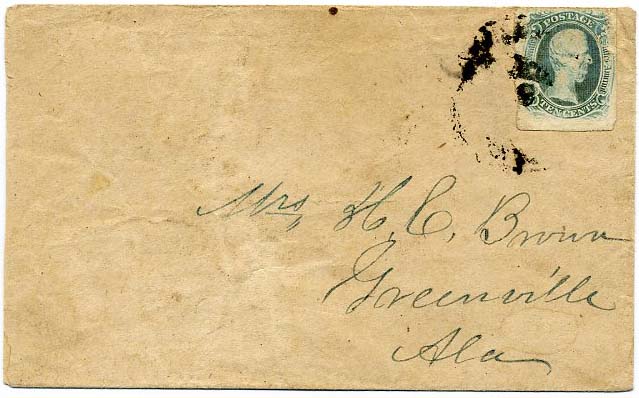 POSTAGE
TEN CENTS
Mrs, H. C. Brown
Greenville
Ala